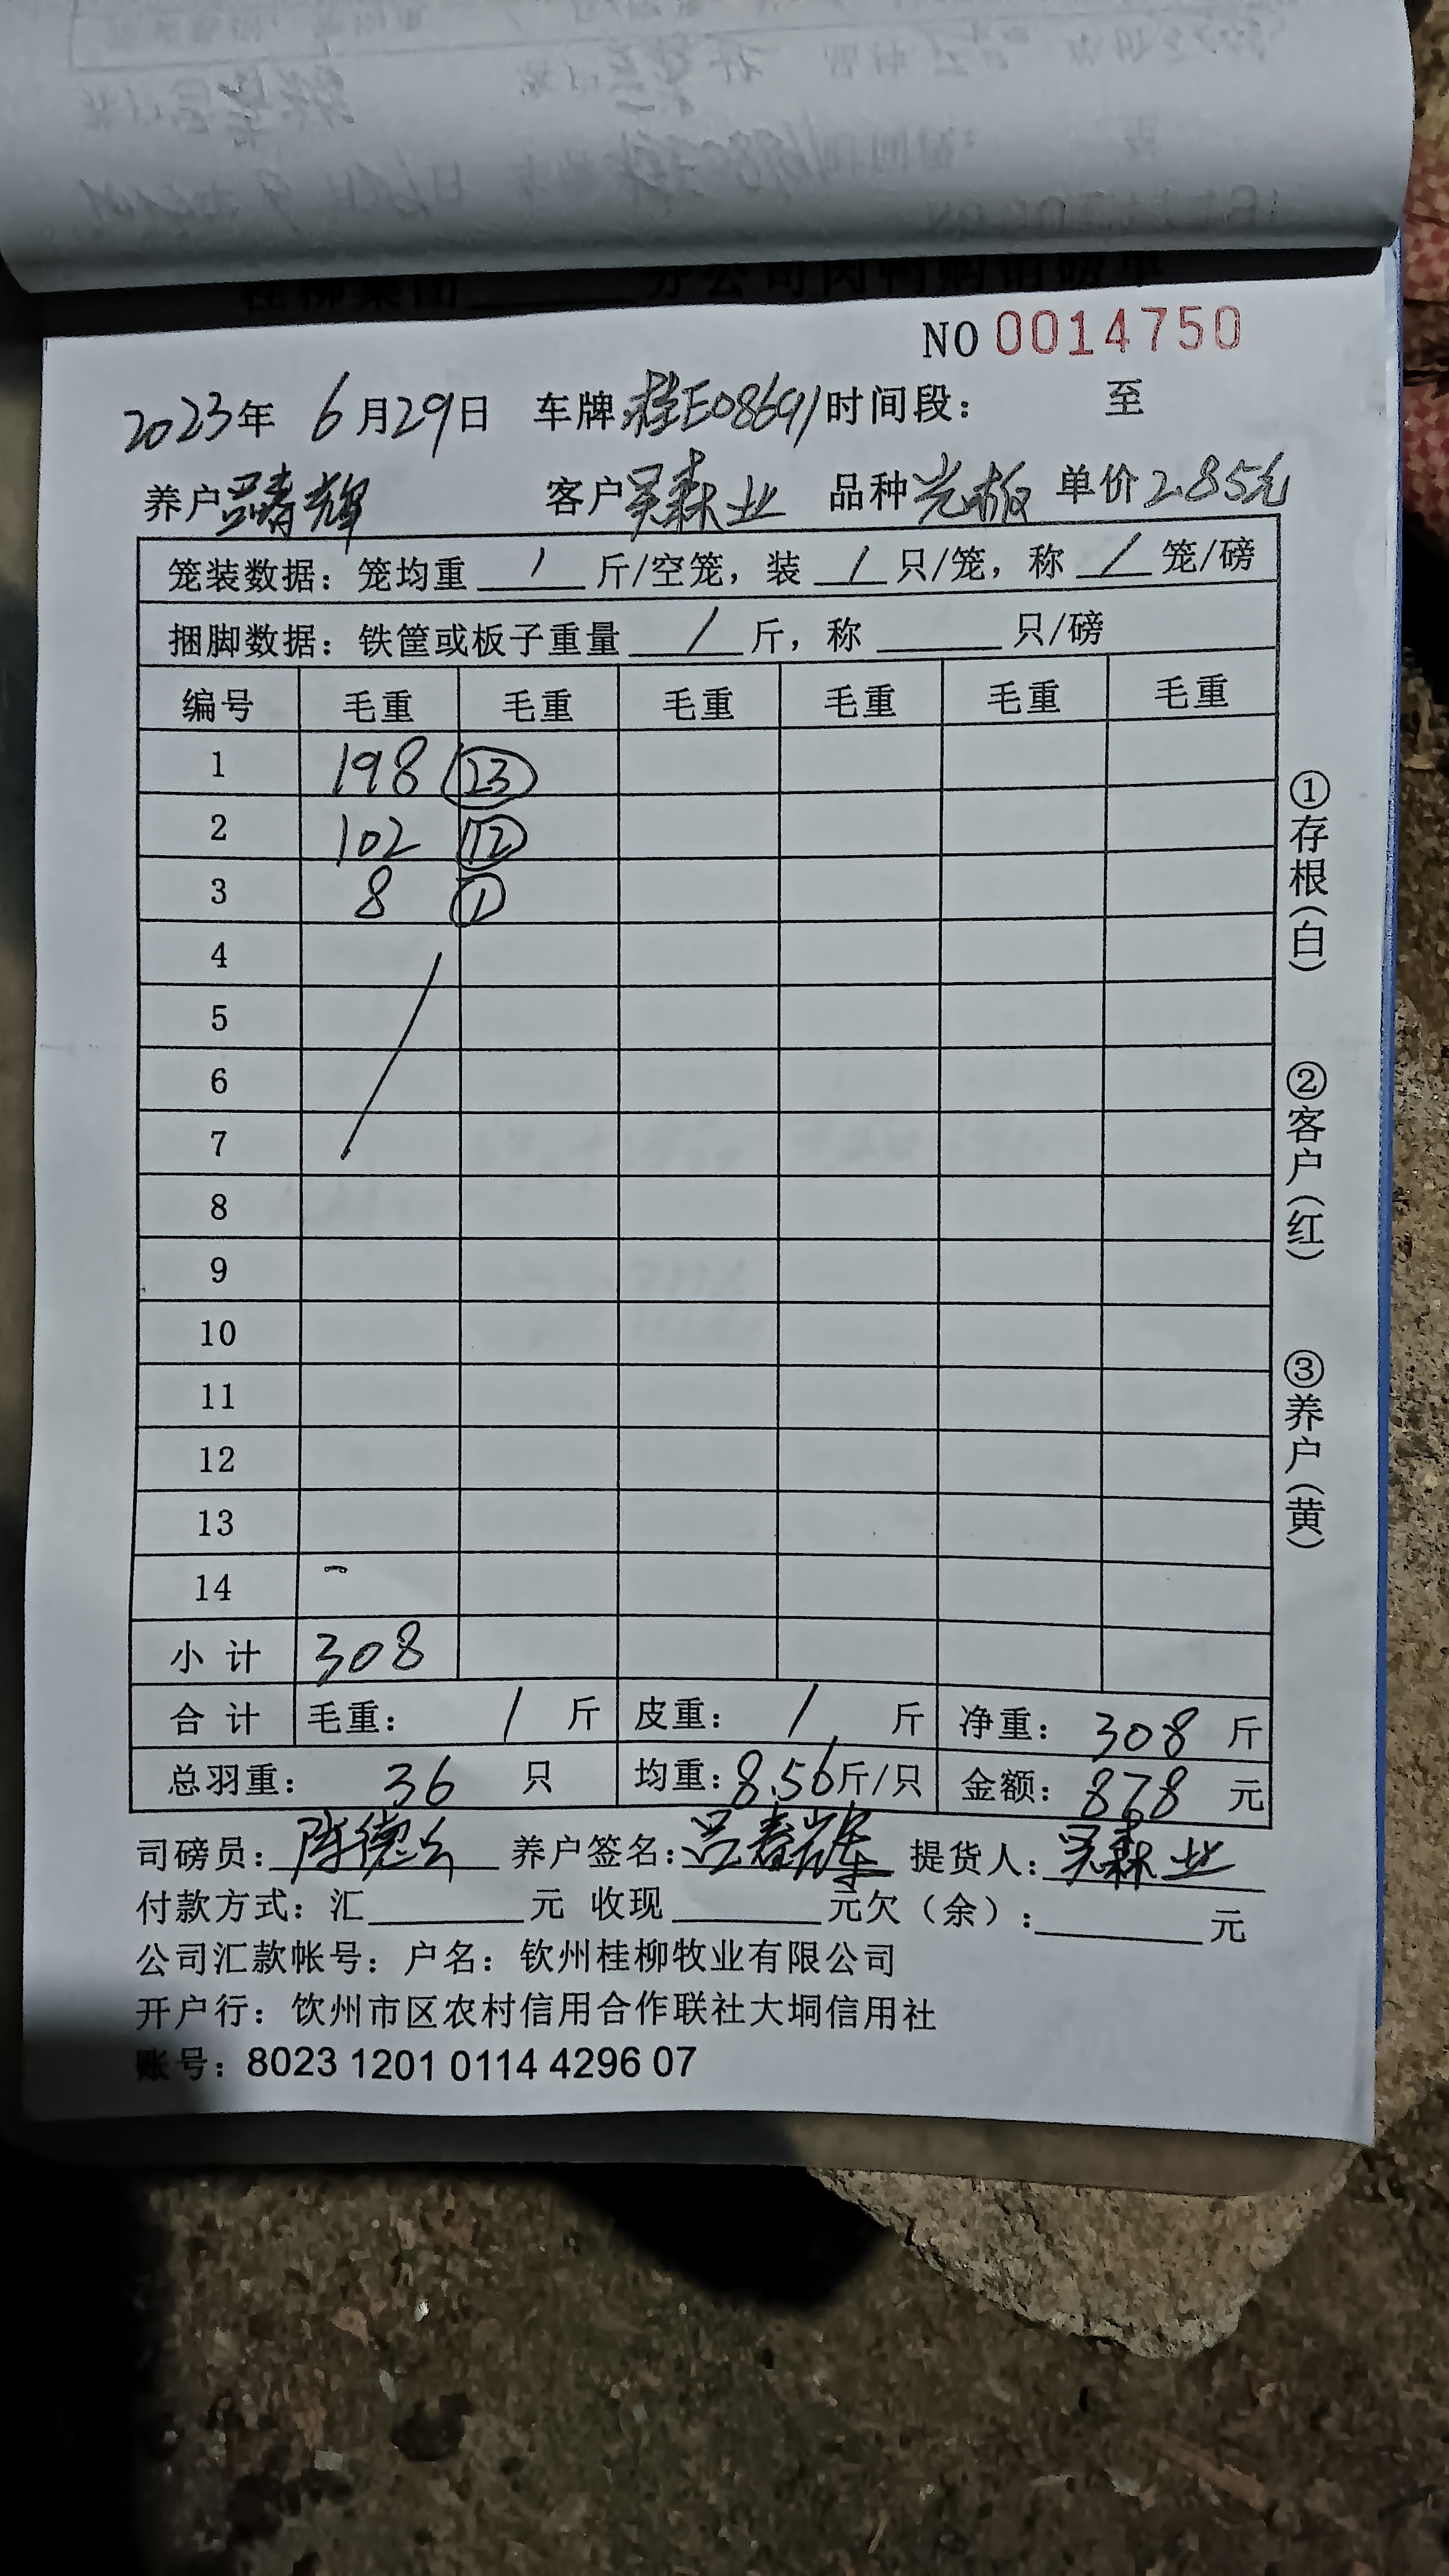 桂柳集团______分公司肉鸭购销磅单
NO 0014750
2023年 6月29日 车牌桂E08691时间段： 至
养户吕春辉 客户吴森业 品种光板 单价2.85元
笼装数据：笼均重 / 斤/空笼，装 / 只/笼，称 / 笼/磅
捆脚数据：铁筐或板子重量 / 斤，称______只/磅
编号 毛重 毛重 毛重 毛重 毛重 毛重
1 198 23
2 102 12
3 8 1
4
5
6
7
8
9
10
11
12
13
14
小计 308
合计 毛重： / 斤 皮重： / 斤 净重：308斤
总羽重：36 只 均重：8.56斤/只 金额：878 元
司磅员： 养户签名：吕春辉 提货人：吴森业
付款方式：汇______元 收现______元欠（余）：______元
公司汇款帐号：户名：钦州桂柳牧业有限公司
开户行：钦州市区农村信用合作联社大垌信用社
账号：8023 1201 0114 4296 07
①存根（白）
②客户（红）
③养户（黄）